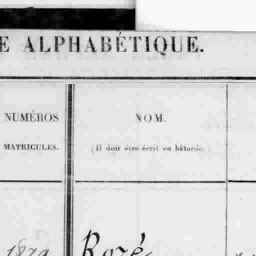 E ALPHABÉTIQUE.
NUMÉROS
MATRICULES.
NOM.
(Il doit être écrit en bâtarde.)
1879 Rozé